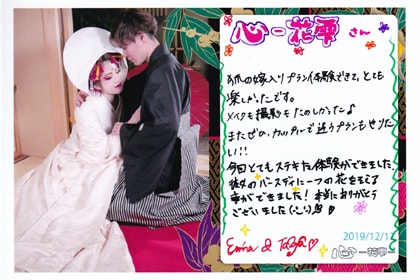 心-花雫 さん
狐の嫁入りプラン体験できて、とても
楽しかったです。
メイクも撮影もたのしかった♪
またぜひ、カップルで違うプランもやりた
い!!!
今回とてもステキな体験ができました
彼女のバースディに一つの花をそえる
事ができました!本当にありがとう
ございました
Emina &
2019/12/1
心-花雫-